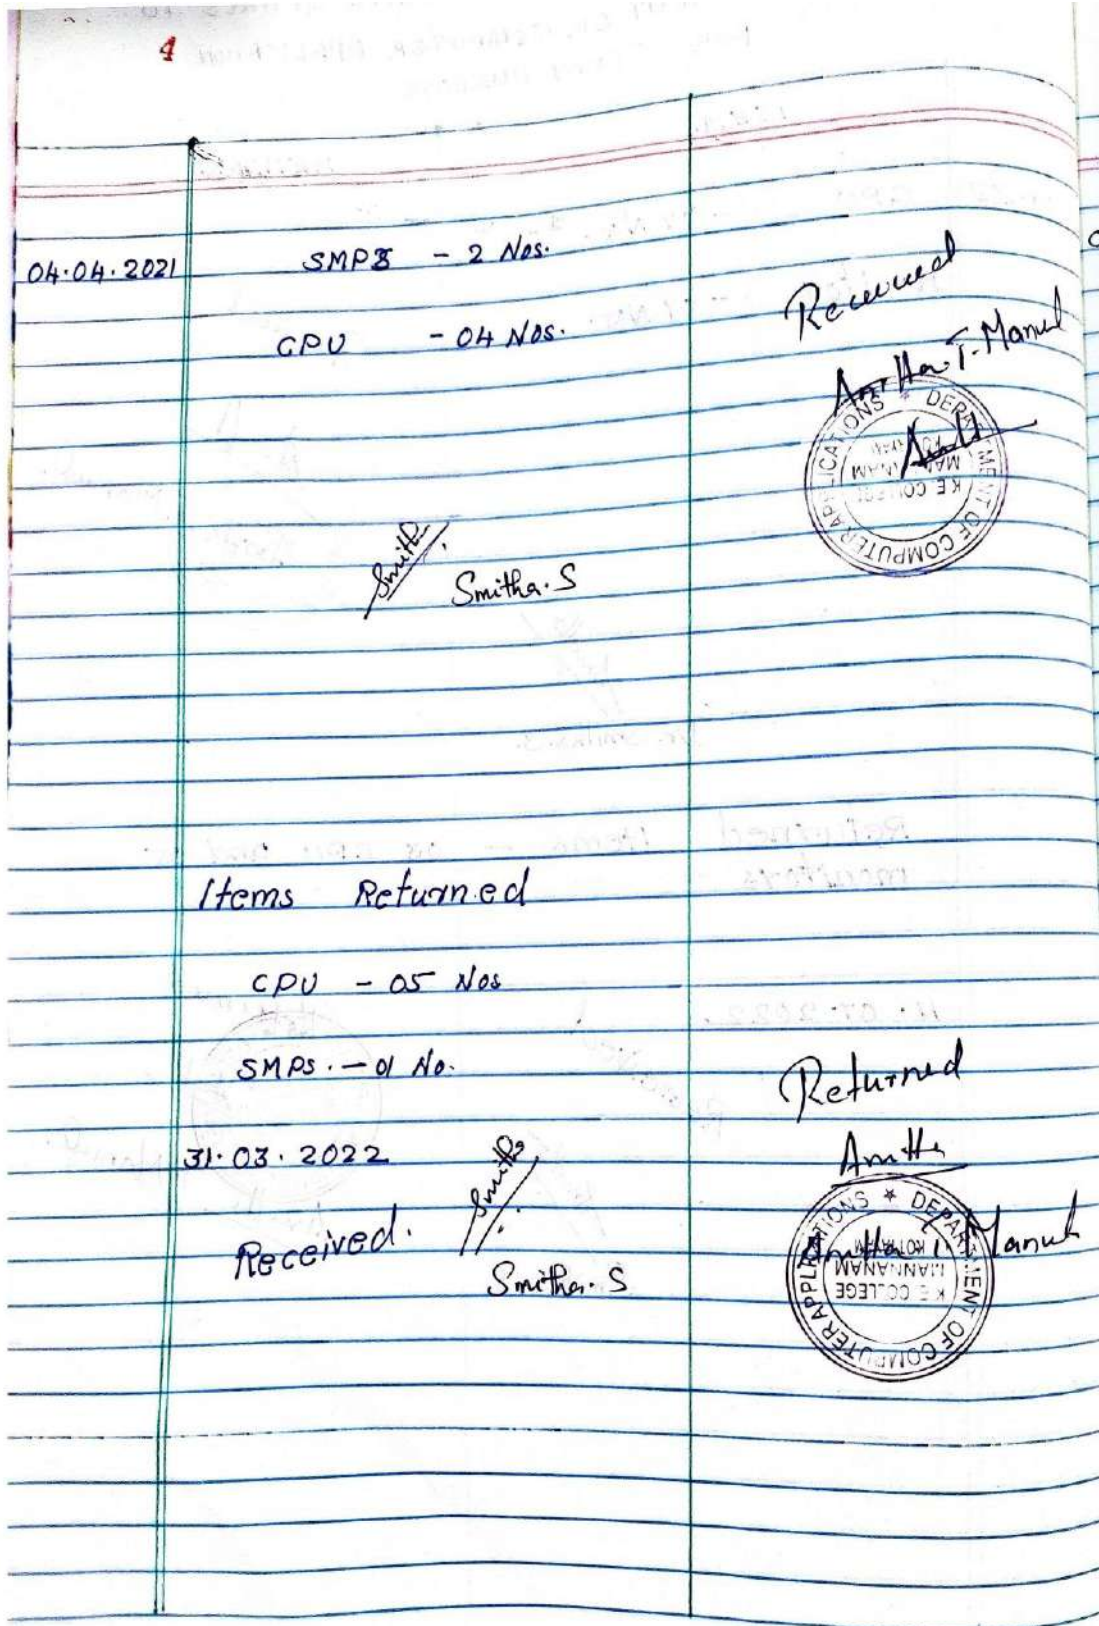 4
04.04.2021 SMPS - 2 Nos.
CPU - 04 Nos.
Received
Anitha T. Manuel
DEPARTMENT OF COMPUTER APPLICATIONS *
K.E. COLLEGE
MANNANAM
KOTTAYAM
Smitha
Smitha. S
Items Returned
CPU - 05 Nos
SMPS. - 01 No.
31.03.2022
Received.
Smitha
Smitha. S
Returned
Anitha
Anitha T. Manuel
DEPARTMENT OF COMPUTER APPLICATIONS *
K.E. COLLEGE
MANNANAM
KOTTAYAM